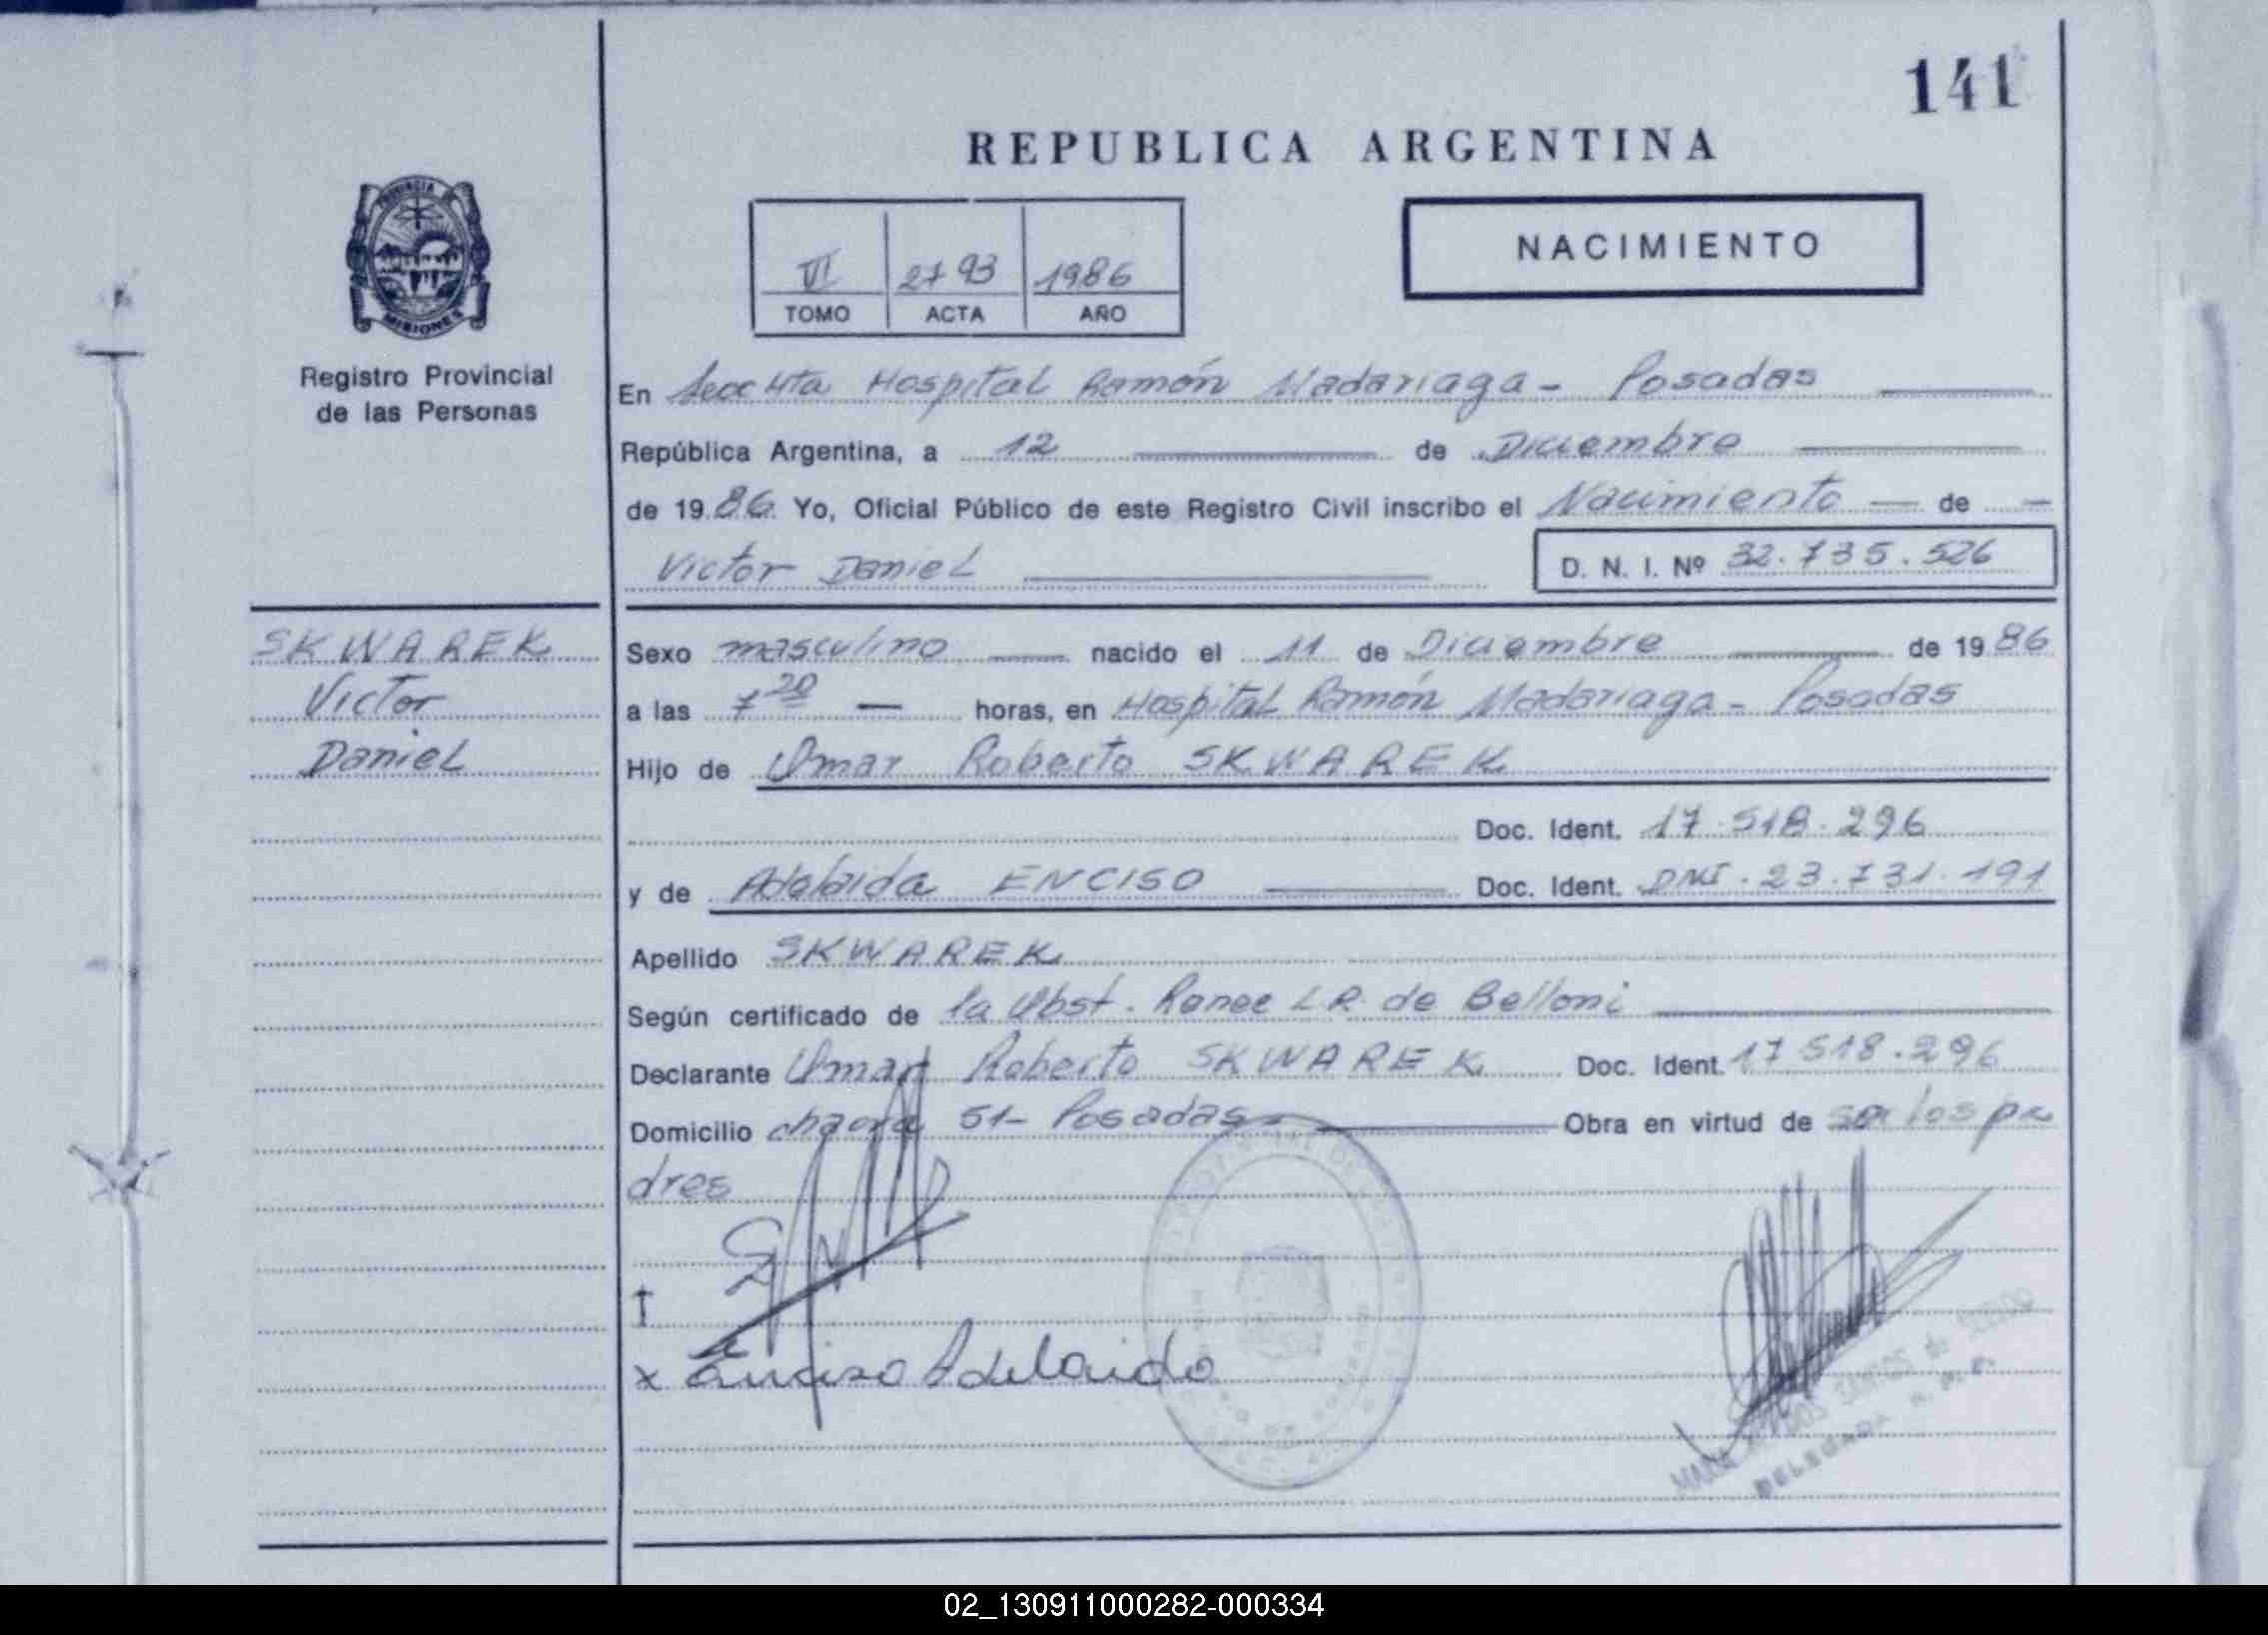 141
REPUBLICA ARGENTINA
NACIMIENTO
VI 2793 1986
TOMO ACTA AÑO
PROVINCIA DE
MISIONES
Registro Provincial
de las Personas
En Hospital Ramón Madariaga - Posadas
República Argentina, a 12 de Diciembre
de 1986 Yo, Oficial Público de este Registro Civil inscribo el Nacimiento de
Victor Daniel
D. N. I. Nº 32.735.526
SKWAREK
Victor
Daniel
Sexo masculino nacido el 11 de Diciembre de 1986
a las 7 20 horas, en Hospital Ramón Madariaga - Posadas
Hijo de Omar Roberto SKWAREK
Doc. Ident. 17.518.296
y de Adelaida ENCISO Doc. Ident. DNI. 23.731.191
Apellido SKWAREK
Según certificado de la Obst. Renee L R. de Belloni
Declarante Omar Roberto SKWAREK Doc. Ident. 17.518.296
Domicilio chacra 51- Posadas Obra en virtud de ser los pa
dres
x Enciso Adelaida
MARIA SANTOS de
DELEGADA R. P. P.
02_130911000282-000334